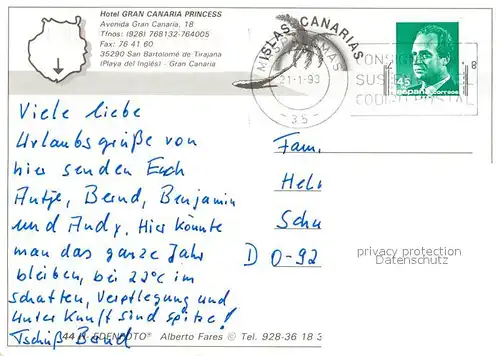 Hotel GRAN CANARIA PRINCESS
Avenida Gran Canaria, 18
Tfnos: (928) 768132-764005
Fax: 76 41 60
35290 San Bartolomé de Tirajana
(Playa del Inglés) - Gran Canaria
ISLAS CANARIAS
21-1-93
-35-
CONSIGNE
SUS
CODIGO POSTAL
45
españa correos
Viele liebe
Urlaubsgrüße von
hier senden Euch
Antje, Bernd, Benjamin
und Andy. Hier könnte
man das ganze Jahr
bleiben, bei 22°C im
schatten, Verpflegung und
Unterkunft sind spitze!
Tschüß Bernd
Fam.
Hel
Schu
D O-92
privacy protection
Datenschutz
44 Alberto Fares © Tel. 928-36 18 3